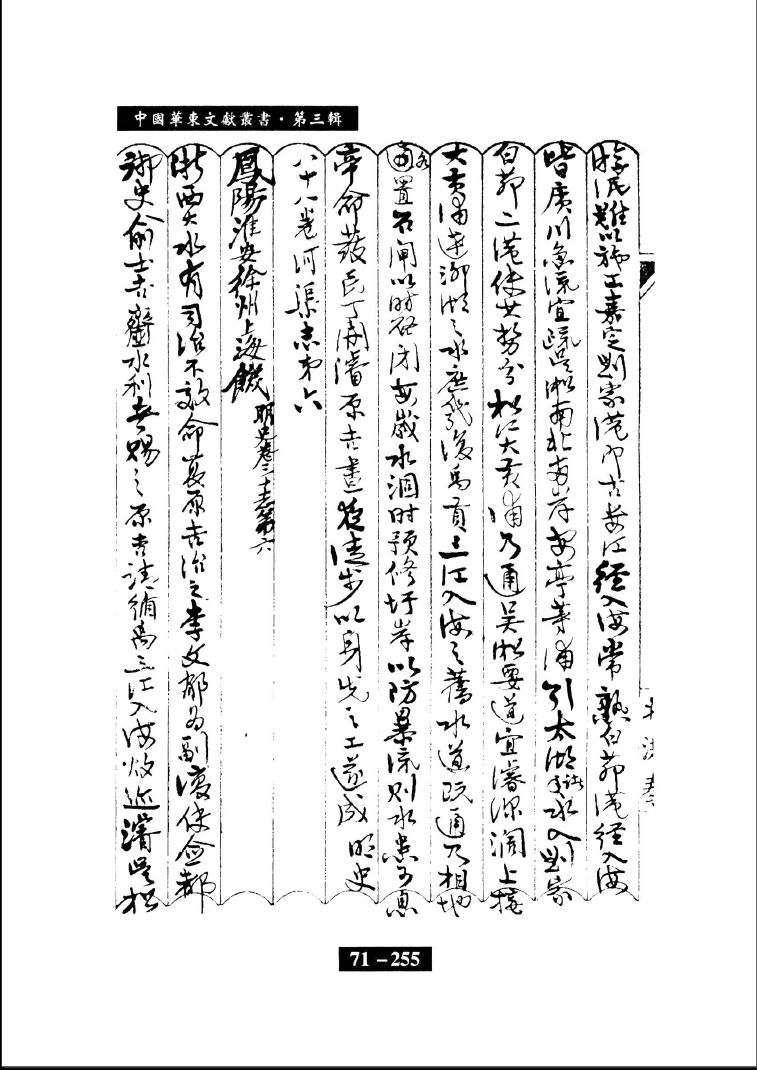 中國華東文獻叢書·第三輯
於泥難以施工嘉定劉家港即古婁江徑入海常熟白茆港徑入海
皆廣川急流宜疏吳淞南北兩岸安亭等浦引太湖諸水入劉家
白茆二港使其勢分松江大黃浦乃通吳淞要道宜濬深濶上接
大黃浦達泖湖之水庶幾復禹貢三江入海之舊水道既通乃相地
勢各置石閘以時啟闭每歲水涸时預修圩岸以防暴流則水患可息
帝命發民丁開濬原吉晝夜徒步以身先之工遂成 明史
八十八卷河渠志第六
鳳陽淮安徐州上海饑 明史卷 第六
浙西大水有司治不效命夏原吉治之李文郁為副復使僉都
御史俞士吉齎水利書賜之原吉請循禹三江入海故迹濬吳松
71-255